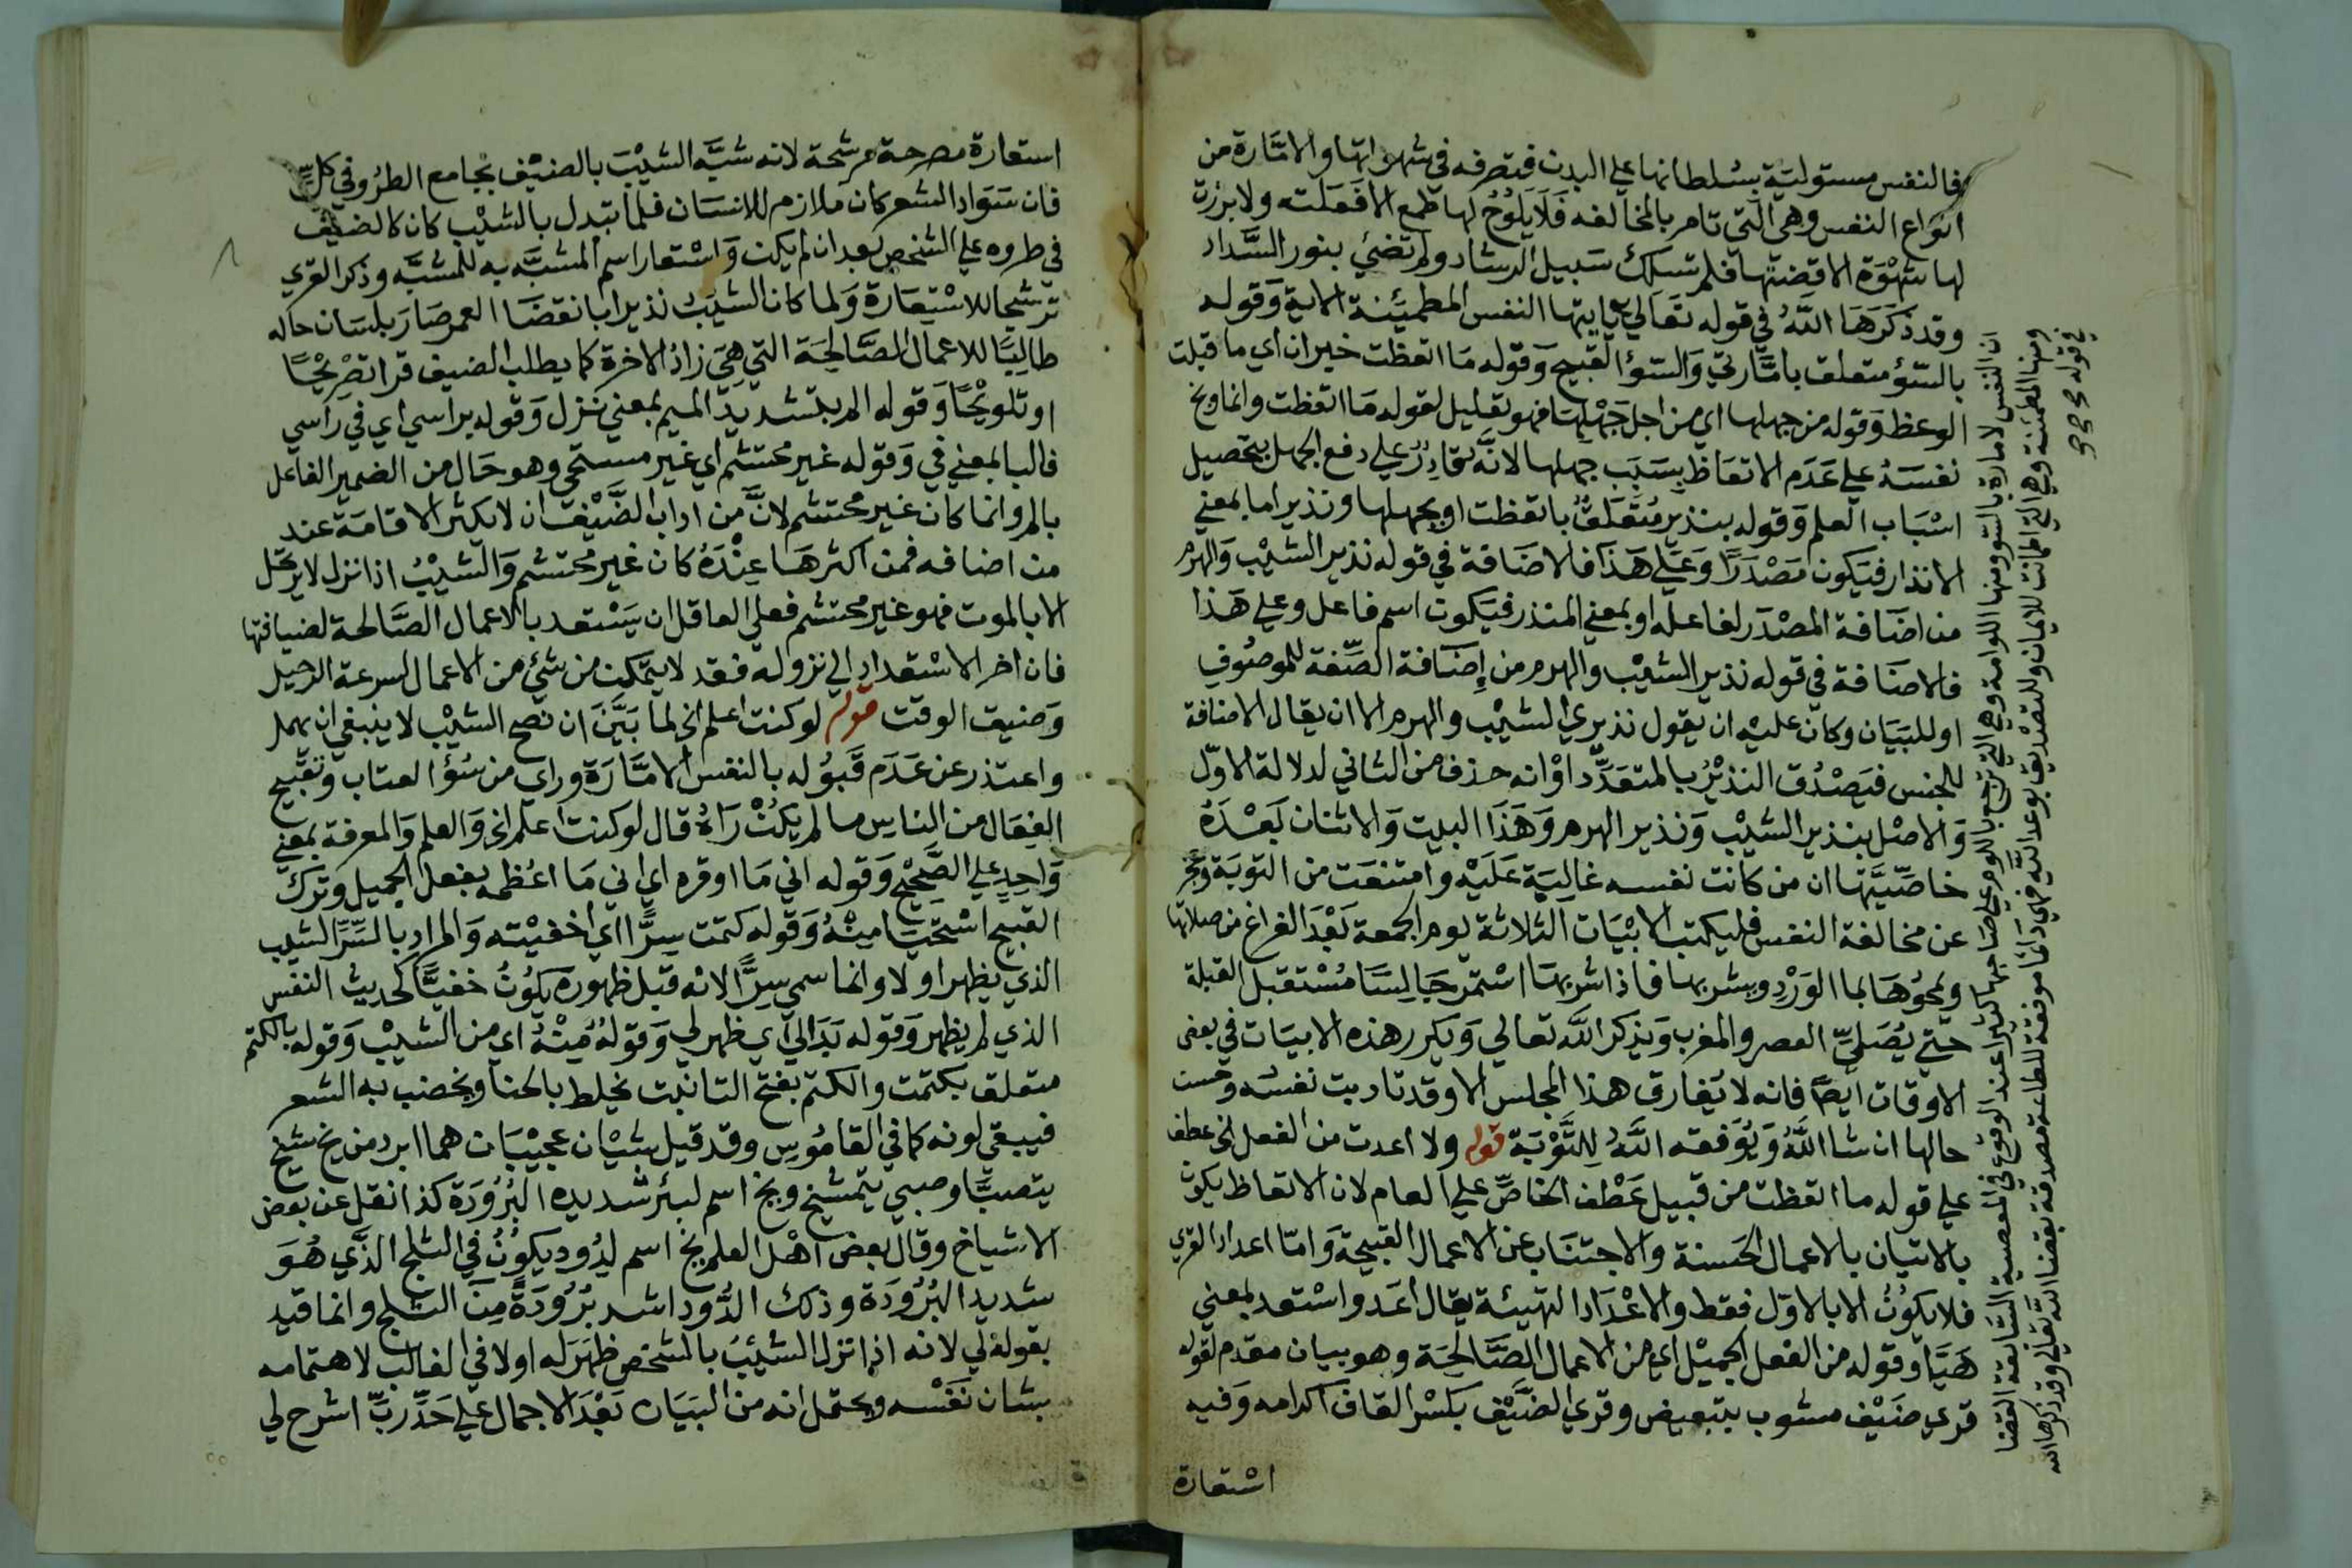 فالنفس مستولية بسلطانها على البدن فتصرفه في شهواتها والامّارة من
انواع النفس وهي التي تامر بالمخالفه فَلَا يَلُوحُ لها طمع الا فَعَلته ولا برزة
لها شَهْوَة الا قضتها فلم تسلك سَبيل الرشاد ولم تضئ بنور السَّداد
وقد ذكَرَهَا اللّهُ في قوله تَعَالي يايتها النفس المطمئنة الاية وَقوله
بالسّؤ متعلق بامَّارتي وَالسّؤ القبيح وَقوله مَا اتعظت خبر ان اي ما قبلت
الوعظ وَقوله من جهلها اي من اجل جَهْلِهَا فهو تعليل لقوله مَا اتعظت وانما وبخ
نفسَهُ علي عَدَم الاتعاظ بِسَبَب جهلها لانَّه قادِرٌ علي دفع الجهل بتحصيل
اسْبَاب العلم وَقوله بنذير مُتَعَلقٌ باتعظت او بجهلها ونذير اما بمعني
الانذار فيَكون مَصْدَرًا وَعَلَي هَذَا فالاضَافة في قوله نذير الشَيْب وَالهرم
من اضَافة المصْدَر لفاعله او بمعني المنذر فيَكون اسم فاعل وعلي هَذا
فالاضَافة في قوله نذير الشيْب والهرم من إضَافة الصِّفة للموصُوف
او للبَيَان وكان عليْه ان يقول نذيري الشيْب والهرم الا ان يقال الاضافة
للجنس فيَصْدُق النذيْرُ بالمتعَدِّد اوْ انه حذف من الثاني لدلالة الاوّل
وَالاصْل بنذير الشيْب وَنذير الهرم وَهَذَا البيت وَالاثنان بَعْدَهُ
خاصِّيَّتها ان من كانت نفسه غالبَة عَلَيْه وامتنعَت من التوبَة وعجز
عن مخالفة النفس فليكتب الابْيَات الثلاثة يوم الجمعة بَعْدَ الفراغ من صلاتها
ويمحُوهَا بما الوَرْدِ ويشربها فاذا شربهَا اسْتمر جَالِسًا مُسْتقبل القبلة
حَتّي يُصَلّيَ العصر والمغرب وَيذكر اللّه تعالي وَيكرر هذه الابيَات في بعض
الاوقات ايضًا فانه لا يُفارق هذا المجلس الا وقد تادبت نفسُه وحسن
حالها ان شا اللّهُ وَيُوَفقه اللّهُ لِلتَّوْبَة قوله ولا اعدت من الفعل الخ عطف
علي قوله ما اتعظت من قبيل عَطْف الخاصِّ علي العام لان الاتعاظ يكون
بالاتيان بالاعمال الحَسنة والاجتنَاب عن الاعمال القبيحَة وَامّا اعداد القري
فلا يكوُنُ الا بالاوّل فقط والاعْدَاد التهيئة يقال اعَد واسْتعد بمعني
هَيَّا وقوله من الفعل الجميْل اي من الاعمال الصَّالِحَة وهو بيان مقدم لقوله
قري ضَيْف مشوب بتبعيض وقري الضَّيْف بكسْر القاف اكرامه وَفيه
اسْتعارة
ان النفس لامارة بالسو ومنها اللوامة وهي التي ترجع باللوم علي صَاحبها كثيرا عند الوقوع في المعصية السّابقة القضا
ومنها المطمئنة وهي التي اطمانت للايمان وللتصديق بوعد اللّه فهي دَائما موفقة للطاعة مصدقة بقضا اللّه تعالي وقد ذكرها اللّه
في قوله
استعارة مصرحة مرشحة لانه شبَّه الشيْبَ بالضيْف بجامع الطرُو في كلٍّ
فان سَوَاد الشعر كان ملازم للانسَان فلما تبَدل بالشيْب كان كالضيْف
في طروه علي الشخص بعد ان لم يكن وَاسْتعار اسم المشبَّه به للمشبَّه وذكر القري
ترشيحا للاسْتِعَارة وَلما كان الشيب نذيرا بانقضَا العمر صَارَ بلسَان حاله
طالبًا للاعمال الصَّالِحَة التي هيَ زادُ الاخرة كما يطلب الضيف قرا تصْرِيْحًا
او تلويْحًا وَقوله الم بتشديد الميم بمعني نزل وَقوله براسي اي في رَاسي
فالبا بمعني في وَقوله غير محتشم اي غير مستحي وهو حَال من الضمير الفاعل
بالم وانما كان غير محتشم لانَّ من اداب الضَّيْف ان لا يكثر الاقامَة عند
من اضافه فمن اكثرهَا عِنْدَهُ كان غير محتشم وَالشيْبُ اذا نزل لا يرتحل
الا بالموت فهو غير محتشم فعلي العاقل ان يَسْتعد بالاعمال الصَّالحة لضيافتها
فان اخر الاسْتعداد الي نزوله فقد لا يتمكن من شئ من الاعمال لسرعة الرحيل
وَضيق الوقت قوله لو كنت اعلم الخ لما بَيَّنَ ان نصح الشيْب لا ينبغي ان يهمل
واعتذر عن عَدَم قبُوْله بالنفس الامّارَة وراي من سُؤ العتاب وتقبيح
الفِعَال من الناس ما لم يكنْ رَاهُ قال لو كنت اعلم الخ وَالعلم وَالمعرفة بمعني
وَاحِدٍ علي الصَّحِيْح وَقوله اني مَا اوقره اي اني مَا اعُظمه بفعل الجميل وَترك
القبيح اسْتحيَا مِنْهُ وَقوله كتمت سِرًّا اي اخفيْته وَالمراد بالسِّرّ الشيب
الذي يظهر اولا وانما سمي سِرًّا لانه قبْل ظهوره يكوُنُ خفيًّا كحديث النفس
الذي لم يظهر وَقوله بَدَالي اي ظهر لي وَقولهُ مِنْهُ اي من الشيْب وَقوله بالكتم
متعلق بكتمت والكتم بفتح التا نبت يخلط بالحنا ويخضب به الشعر
فيبقي لونه كما في القامُوس وقد قيل شيْان عجيْبَان هما ابرد من يخ شيخ
يتصبَّا وصبي يتمشيخ ويخ اسم لبئر شديده البُرُوُدَة كذا نقل عن بعض
الاشياخ وقال بعض اهْل العلم يخ اسم لِدُود يكوُنُ في الثلج الذَّي هُوَ
شديد البُرُوُدَة وذلك الدُّود اشد برُوُدَةً مِنَ الثلج وانما قيد
بقوله لي لانه اذا نزل الشيْبُ بالشخص ظهَرَ له اولا في الغالب لاهتمامه
بشان نَفْسه ويحتمل انه من البَيَان بَعْدَ الاجمال علي حَدِّ رَبِّ اشرح لي